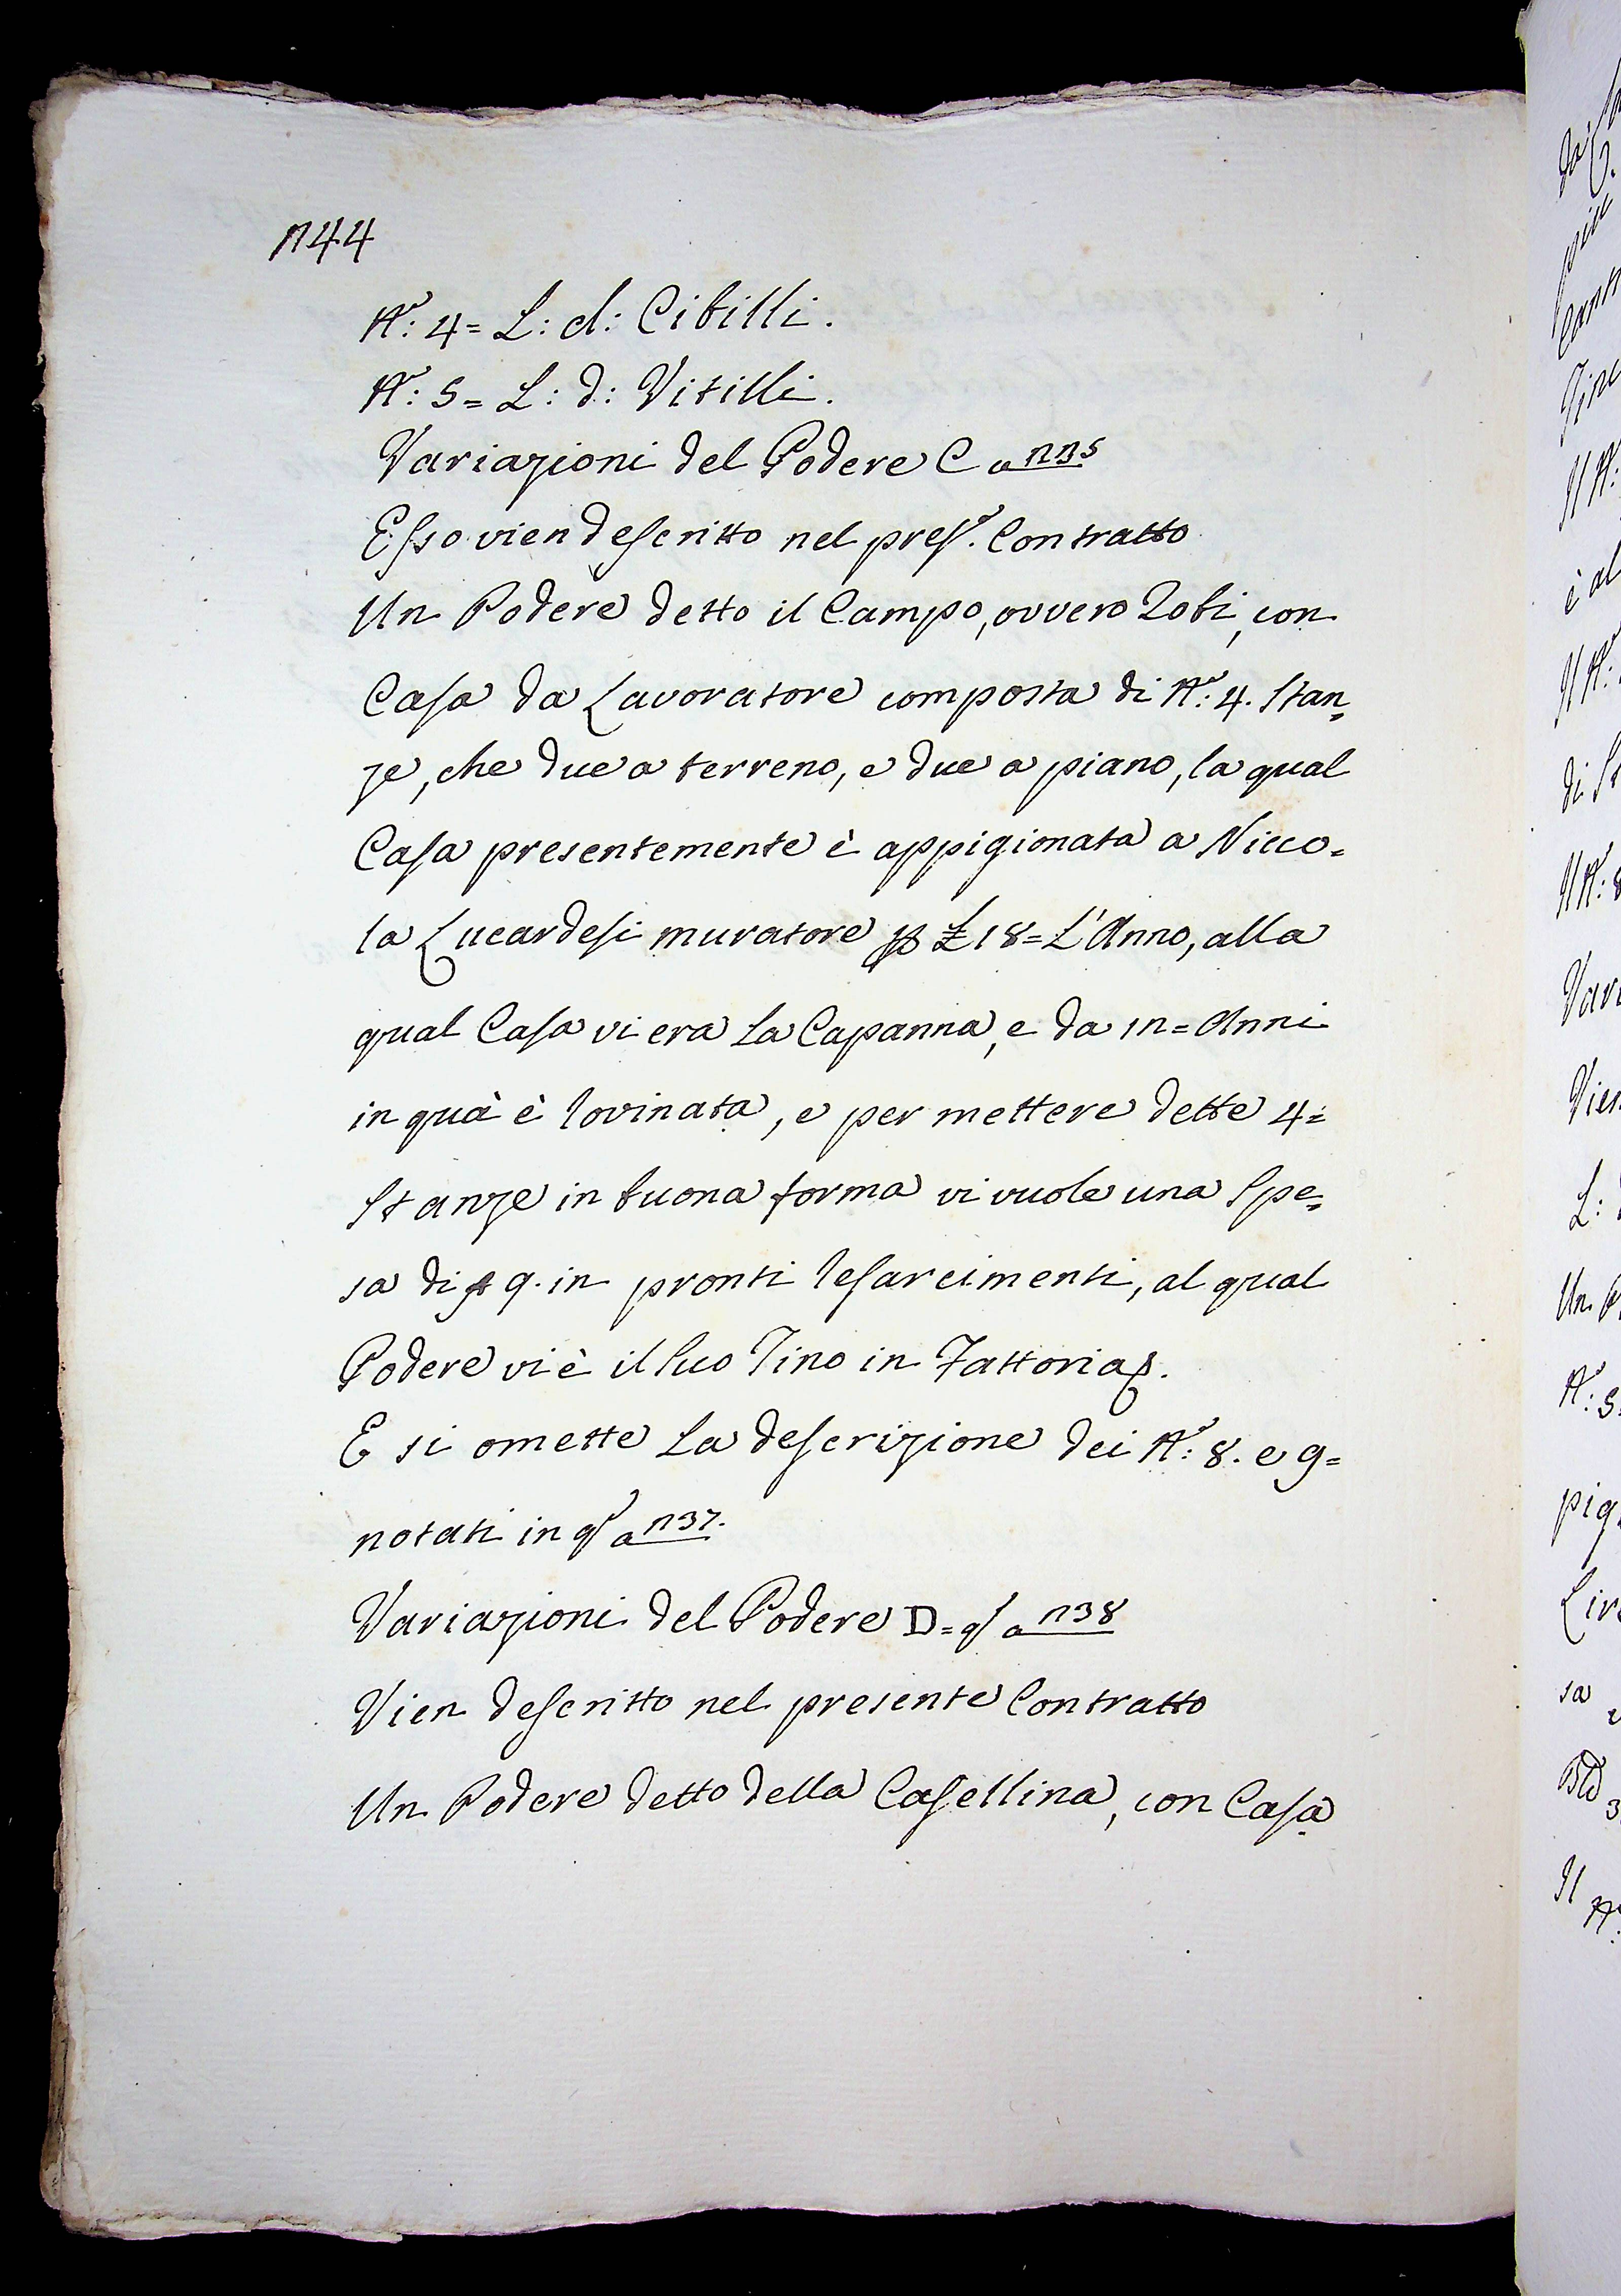 1744
N.º: 4= L: d: Cibilli.
N.º: 5= L: d: Vitilli.
Variazioni del Podere C a 1135
Esso vien descritto nel pres.e Contratto
Un Podere detto il Campo, ovvero Zobi, con
Casa da Lavoratore composta di N.º: 4. Stan=
ze, che due a terreno, e due a piano, la qual
Casa presentemente è appigionata a Nicco=
la Lucardesi muratore p £ 18= L'Anno, alla
qual Casa vi era La Capanna, e da 12= Anni
in quà è rovinata, e per mettere dette 4=
Stanze in buona forma vi vuole una Spe=
sa di 9. in pronti resarcimenti, al qual
Podere vi è il suo Tino in Fattoria
E si omette La descrizione dei N.º: 8. e 9=
notati in q.o a 1137.
Variazioni del Podere D= q.o a 1138
Vien descritto nel presente Contratto
Un Podere detto della Casellina, con Casa